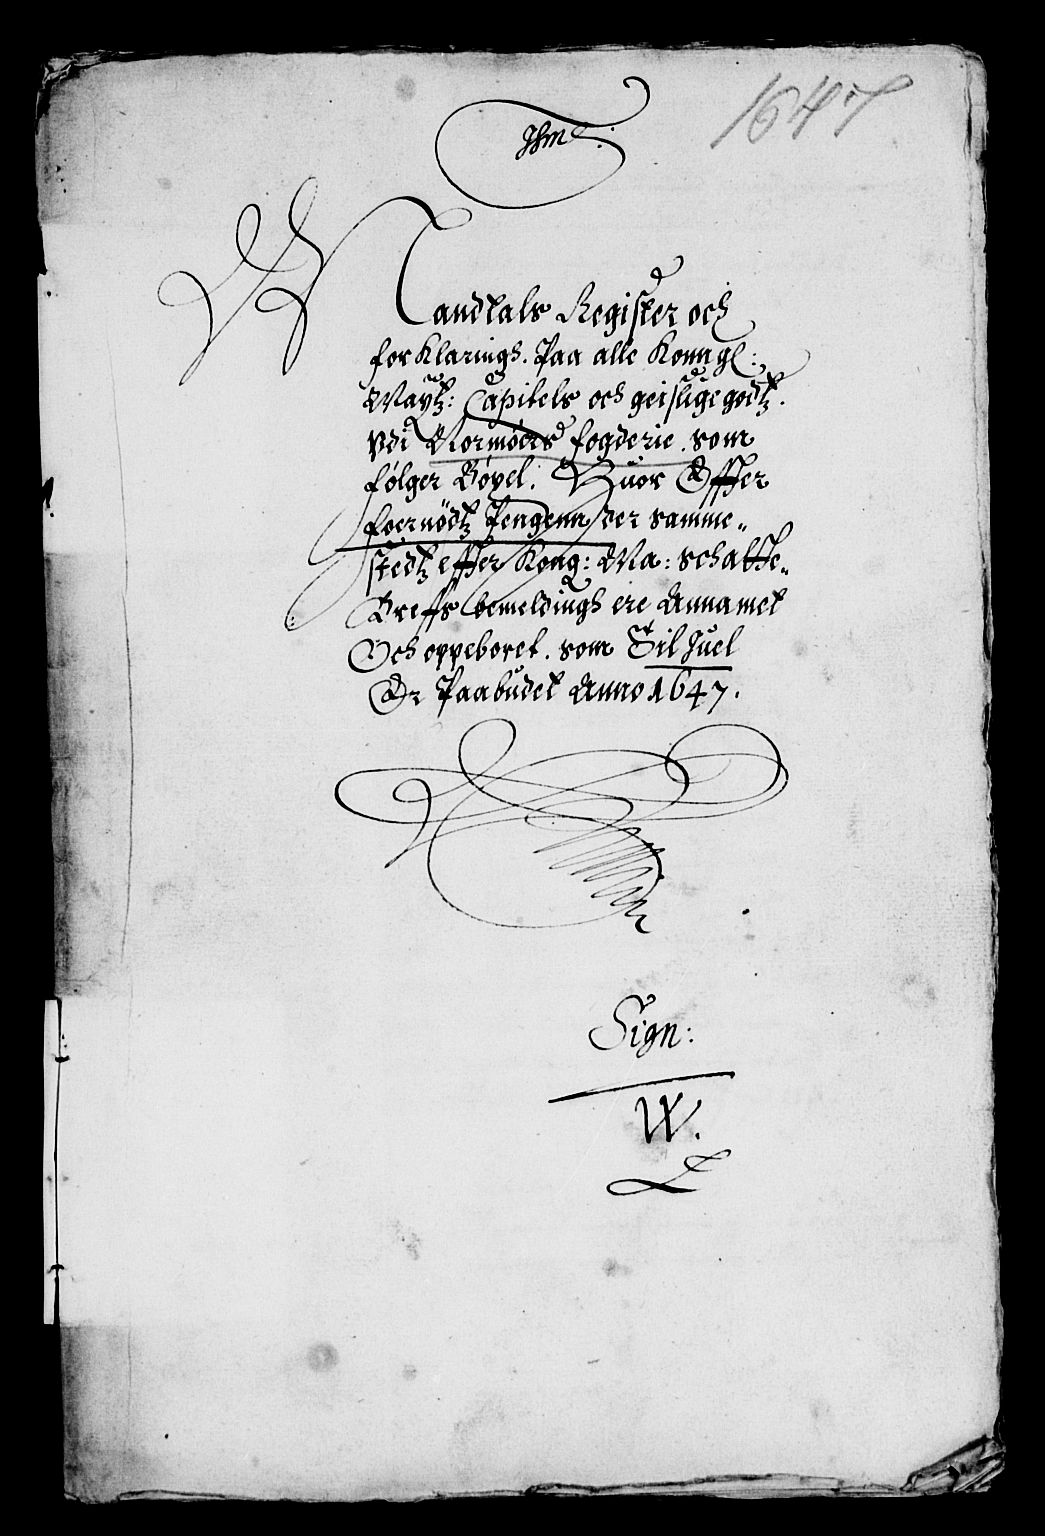 1647
Mandtals Register och
forklaringh. Paa alle Konngl:
Maytz: Capitels och geistlige godtz.
Vdi Normørs fogderie. som
følger Bøxel: Huor Effter
foernødtz Pengenn der samme„
stedtz effter Kong: Ma: schatte„
Breffs bemeldingh ere Annamet
Och oppeboret. som Til Juel
Er Paabudet Anno 1647.
Sign:
W.
L